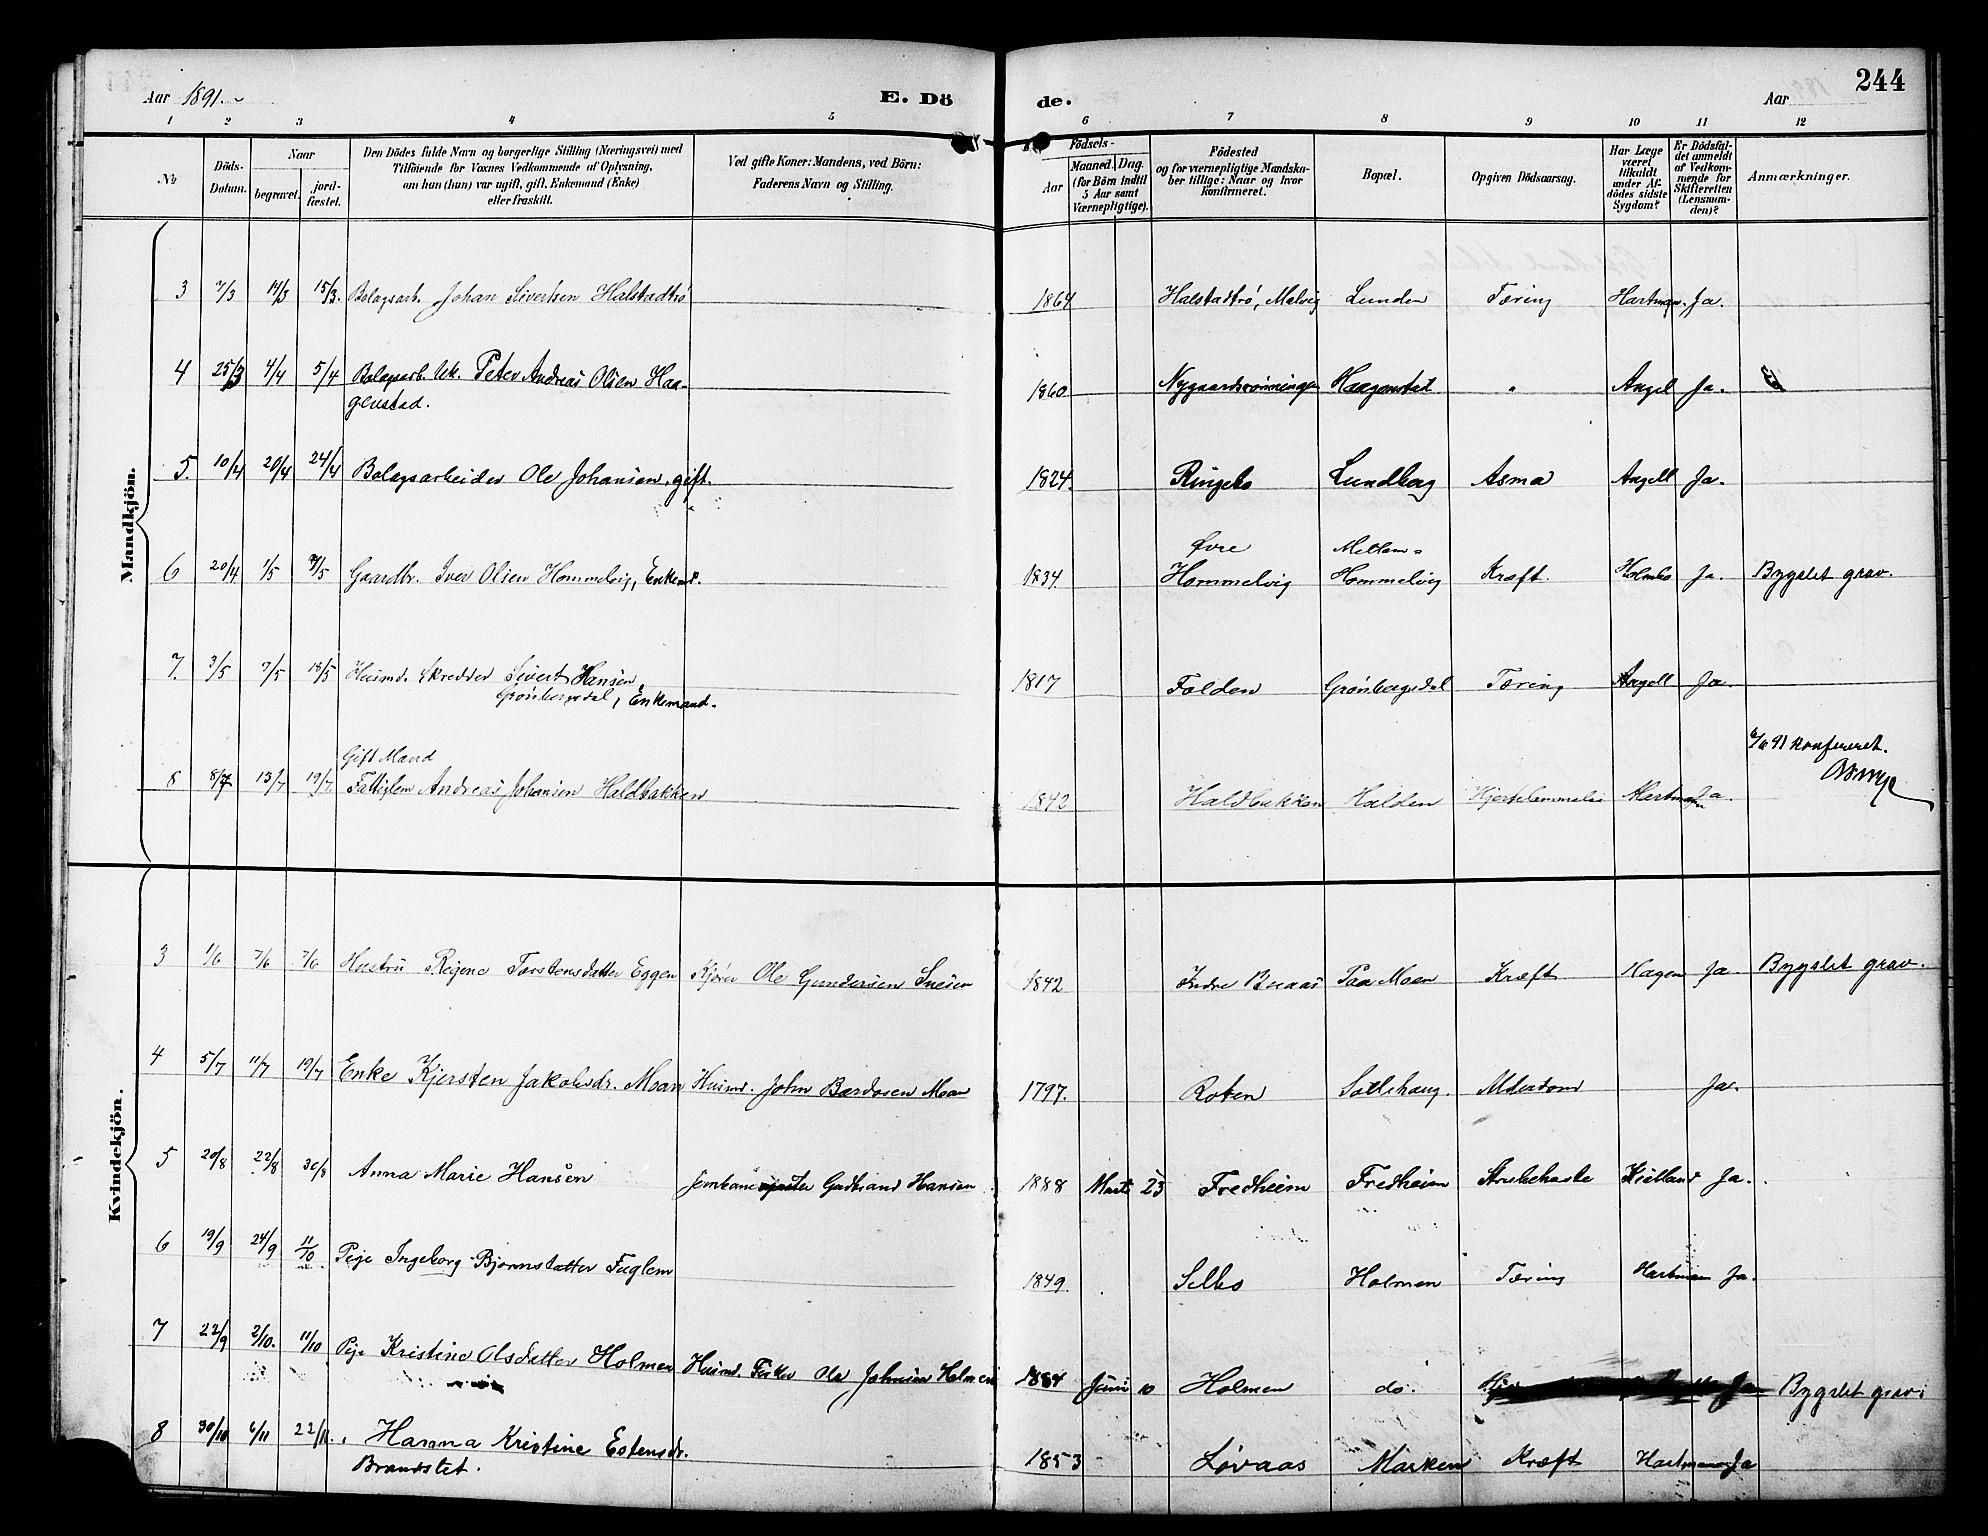 Aar 1891. E. Dö de. Aar 244
1 2 3 4 5 6 7 8 9 10 11 12
No
Döds-Datum.
Naar
begravet.
jord-fæstet.
Den Dödes fulde Navn og borgerlige Stilling (Næringsvei) med
Tilföiende for Voxnes Vedkommende af Oplysning,
om han (hun) var ugift, gift, Enkemand (Enke)
eller fraskilt.
Ved gifte Koner: Mandens, ved Börn:
Faderens Navn og Stilling.
Födsels-
Aar
Maaned. Dag.
(for Börn indtil
5 Aar samt
Værnepligtige).
Födested
og for værnepligtige Mandska-
ber tillige: Naar og hvor
konfirmeret.
Bopæl.
Opgiven Dödsaarsag.
Har Læge
været
tilkaldt
under Af-
dödes sidste
Sygdom?
Er Dödsfal-
det anmeldt
af Vedkom-
mende for
Skifteretten
(Lensman-
den)?
Anmærkninger.
Mandkjön.
3 7/3 14/3 15/3. Bolagsarb. Johan Sivertsen Halstadtrø 1864 Halstadtrø, Malvig Lunden Tæring Hartman, Ja.
4 25/3 4/4 5/4 Bolagsarb. Uk. Peter Andreas Olsen Haa-
genstad. 1860 Nygaardsrønningen Haagenstad " Angel Ja.
5. 10/4 20/4 24/4 Bolagsarbeider Ole Johansen, gift. 1824. Ringebo Lundberg Asma Angell Ja.
Øvre Mellem-
6 20/4 1/5 3/5 Gaardbr. Iver Olsen Hommelvig, Enkemd. 1834 Hommelvig Hommelvig Kræft. Holmbo Ja. Bygslet grav.
7. 3/5 7/5 18/5 Husmd. Skredder Sivert Hansen,
Grønbergsdal, Enkemand. 1817 Folden Grønbergsdal Tæring Angell Ja.
Gift Mand 91 konfereret.
8 8/7 13/7 19/7. Fattiglem Andreas Johansen Haldbakken 1842 Haldbakken Halden Hjertelammelse Hartmann Ja.
Kvindekjön.
3 1/6 7/6 7/6 Hustru Regine Torstensdatter Eggen Kjører Ole Gundersen 1842 Indre Buaas Paa Moen Kræft Hagen Ja. Bygslet grav.
4 5/7 11/7 19/7 Enke Kjersten Jakobsdr. Moan Husmd. John Bardosen Moan 1797. Roten Solbehaug. Alderdom Ja.
5 20/8 22/8 30/8 Anna Marie Hansen Gudbrand Hansen 1888 Marts 23 Fredheim Fredheim Strubehoste Kielland Ja.
6 19/9 24/9 11/10 Pige Ingeborg Bjørnsdatter Fuglem 1849. Selbo Holmen Tæring Hartman Ja.
7 22/9 2/10. 11/10 Pige Kristine Olsdatter Holmen Husmd. Fisker Ole Johnsen Holmen 1884 Juni 10 Holmen do. Ja Bygslet grav.
8 30/10 6/11 22/11. Hanna Kristine Estensdr.
Brandslet. 1853 Løvaas Marken Kræft Hartmann Ja